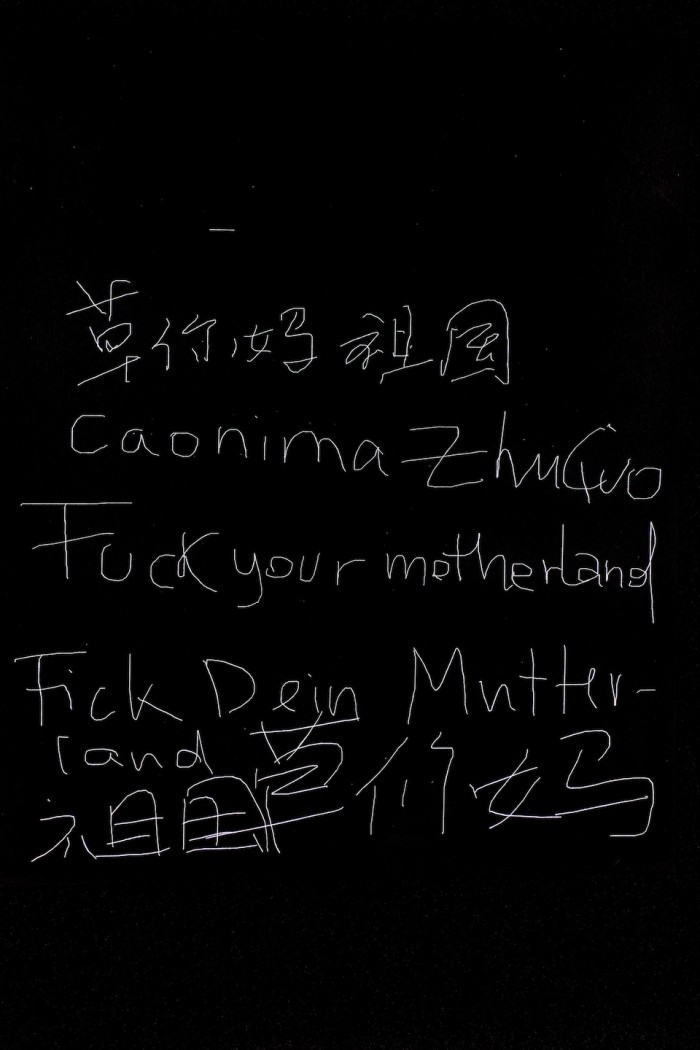 草你妈祖国
Caonima ZhuGuo
Fuck your motherland
Fick Dein Mutter-
land 草你妈
祖国